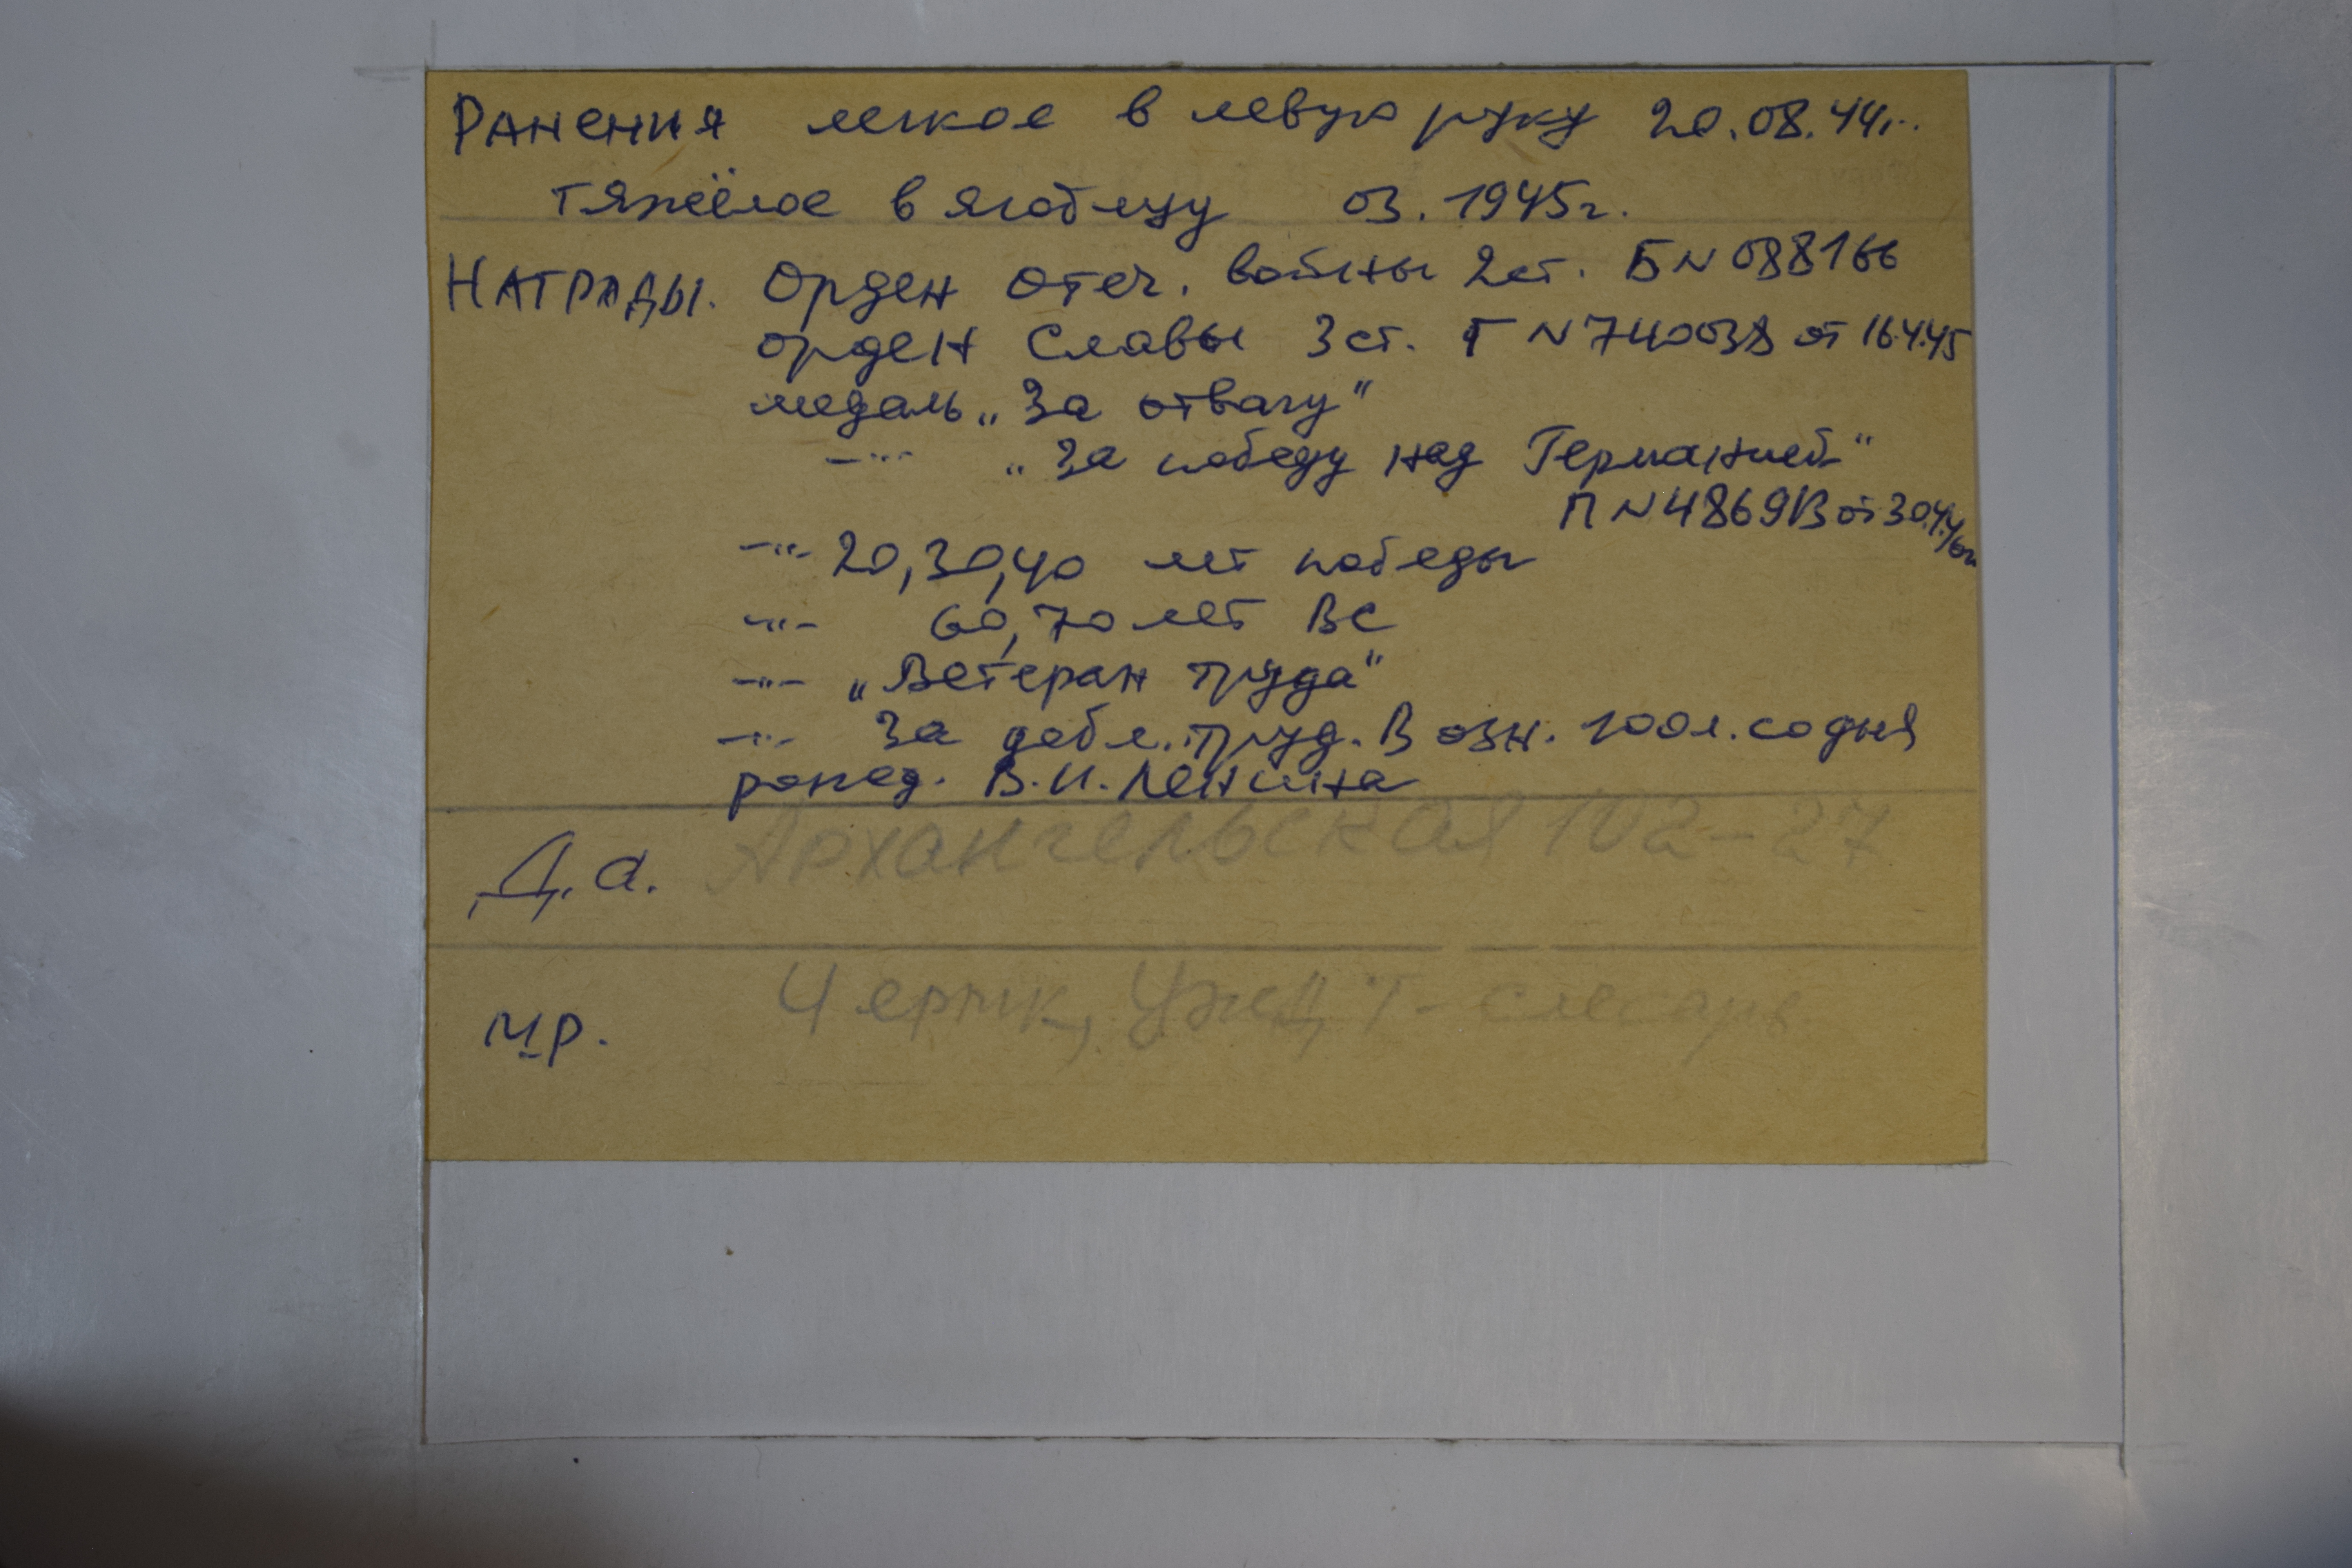 Ранения легкое в левую руку 20.08.44г.
тяжёлое в ягодицу 03.1945г.
Награды. Орден Отеч. войны 2ст. Б N 088166
орден Славы 3 ст. Г N 740038 от 16.4.45
медаль „За отвагу“
—"— „За победу над Германией“
П N 4869 от 30.4.46г
—"— 20,30,40 лет победы
—"— 60,70 лет ВС
—"— „Ветеран труда“
—"— За добл. труд. В озн. 100 л. со дня
рожд. В.И. Ленина
Д.а. Архангельская 102-27
М.р. Черпк, УЖДТ - слесарь